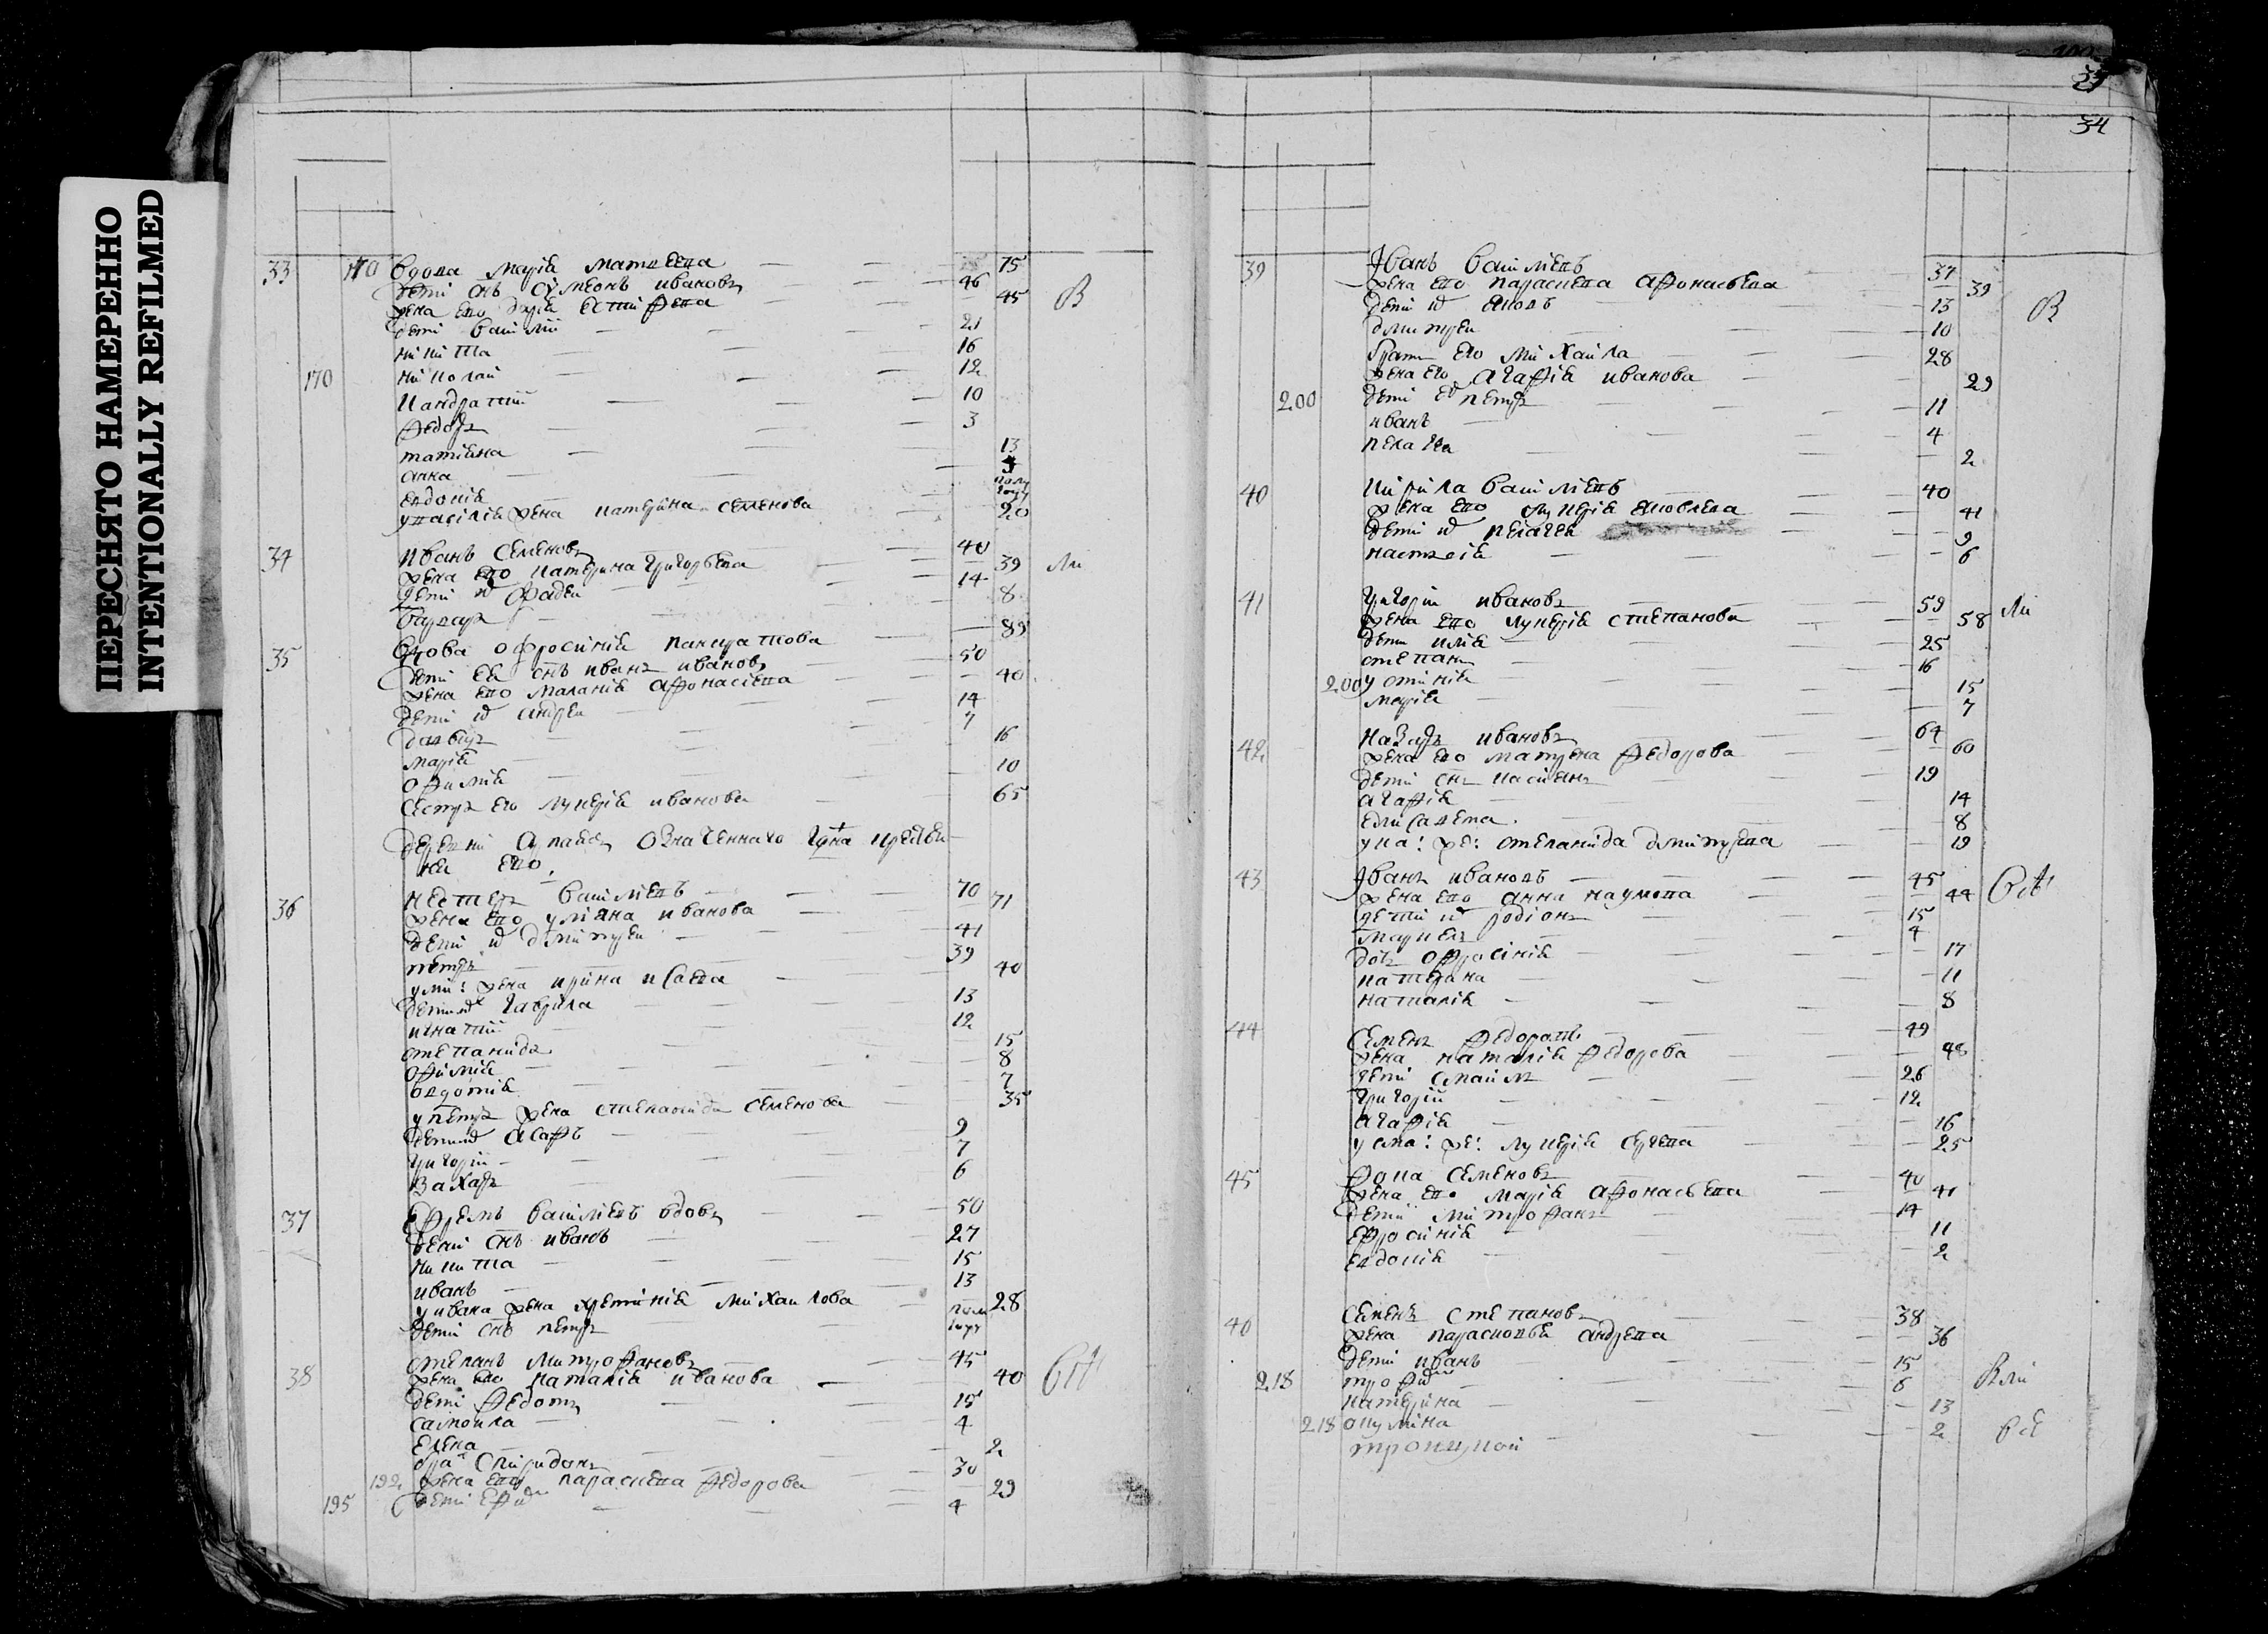 ПЕРЕСНЯТО НАМЕРЕННО
INTENTIONALLY REFILMED
33 170 вдова марія матвеева 75
дети снъ сумеонъ ивановъ 46
жена ево дарія естифева 45 В
дети василіи 21
никита 16
170 николаи 12
кандратіи 10
федоръ 3
татияна 13
анна
евдокія полу году
у василія жена катерина семенова 20
34 иванъ семеновъ 40
жена ево катерина григорьева 39 Ли
дети фадеи 14
варвара 8
35 вдова офросинія панкратова 89
дети ея снъ иванъ ивановъ 50
жена ево маланія афонасіева 40
дети андреи 14
давыдъ 7
марія 16
офимія 10
сестра ево лукерія иванова 65
деревни означеннаго гдна
ка ево
36 нестеръ василіевъ 70
жена ево уліяна иванова 71
дети дмитреи 41
петръ 39
у ми: жена ирина исаева 40
дети гаврила 13
игнатіи 12
степанида 15
офимія 8
овдотия 7
у петра жена степанида семенова 35
дети асафъ 9
григоріи 7
захаръ 6
37 ефремъ василіевъ вдовъ 50
дети снъ иванъ 27
никита 15
иванъ 13
у ивана жена хретинія михаилова 28
дети снъ петръ полу году
38 степанъ митрофановъ 45
жена ево наталія иванова 40
дети федотъ 15
самоила 4
елена 2
бра спиридонъ 30
192 жена ево параскева федорова 29
195 дети 4
34
39 Иванъ василіевъ 37
жена ево параскева афонасьева 39 В
дети яковъ 13
дмитреи 10
братъ ево михаила 28
жена ево агафія иванова 29
200 дети петръ 11
иванъ 4
пелагея 2
40 кирила василіевъ 40
жена ево лукерія яковлева 41
дети пелагея 9
настасія 6
41 григоріи ивановъ 59
жена ево лукерія степанова 58 Ли
дети илія 25
степанъ 16
200 устинія 15
марія 7
42 назаръ ивановъ 64
жена ево матрена федорова 60
дети снъ касиянъ 19
агафія 14
елисавета 8
у ка: же: степанида дмитрева 19
43 Иванъ ивановъ 45
жена ево анна наумова 44
дети родіонъ 15
маркелъ 4
дочь офросинія 17
катерина 11
наталія 8
44 Семенъ федоровъ 49
жена наталія федорова 48
дети смаилъ 26
григоріи 12
агафія 16
у сма: же: лукерія сергева 25
45 фока семеновъ 40
жена ево марія афонасьева 41
дети митрофанъ 14
ефросинія 11
евдокія 2
40 семенъ степановъ 38
жена парасковья андрева 36
дети иванъ 15
218 трофимъ 6
катерина 13
218 акулина 2